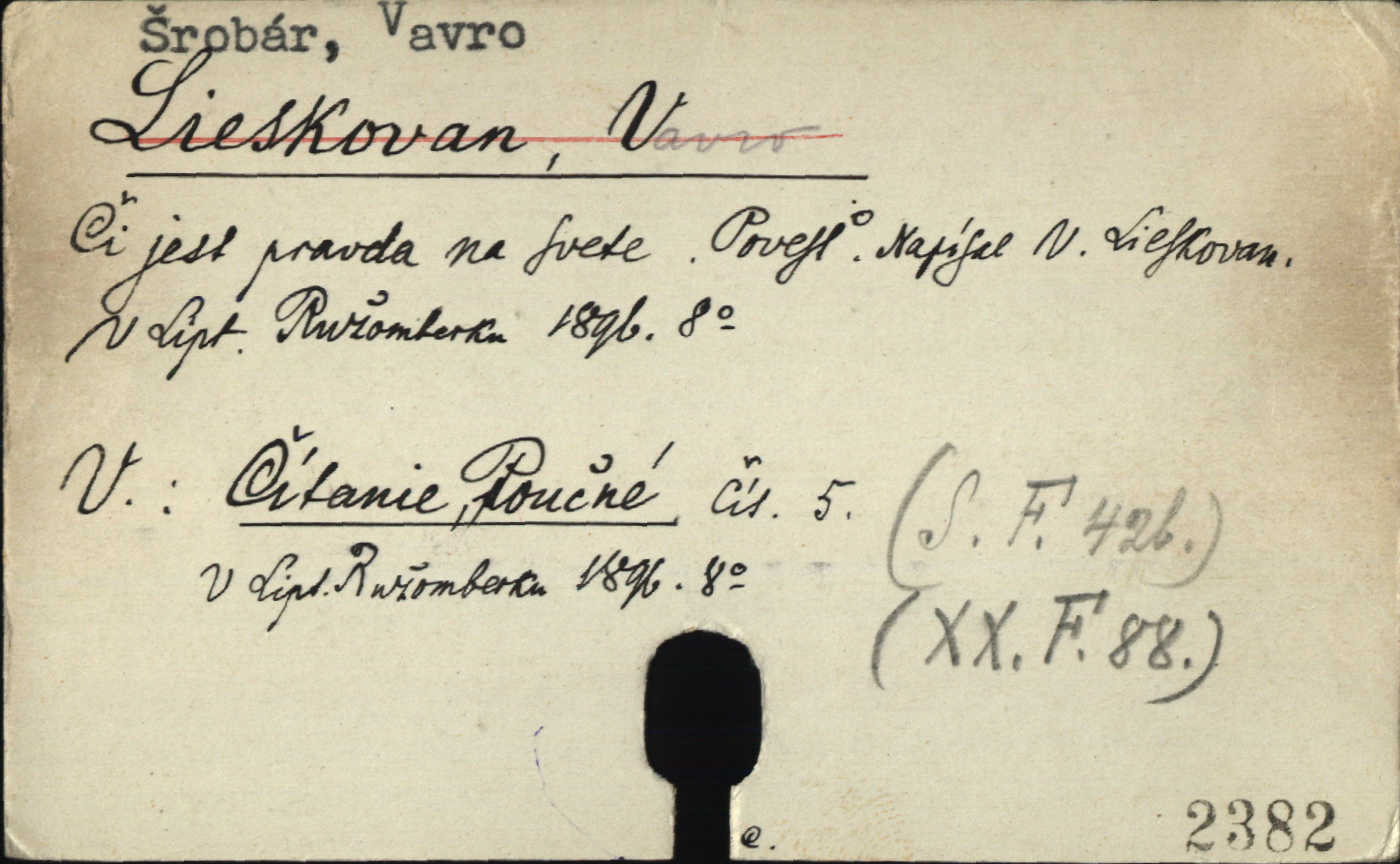 Šrobár, Vavro
Lieskovan, Vavro
Či jest pravda na svete. Povesť. Napísal V. Lieskovan.
V Lipt. Ružomberku 1896. 8°
V.: Čítanie, Poučné čís. 5.
(S. F. 426.)
V Lipt. Ružomberku 1896. 8°
(XX. F. 88.)
e.
2382